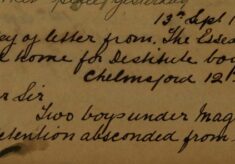 yesterday
13th Sept 1
y of letter from The Essex
Home for Destitute bo
Chelmsford 12th
r Sir
Two boys under Mag
etention absconded from